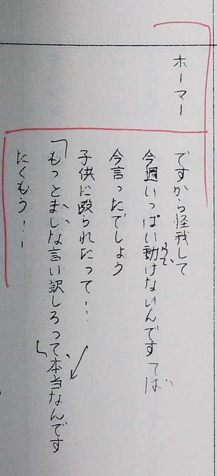 ホーマー
ですから怪我して
今週いっぱい動けないんですってば
今言ったでしょう
子供に殴られたって・・
「もっとましな言い訳しろ」って本当なんです
たくもう・・